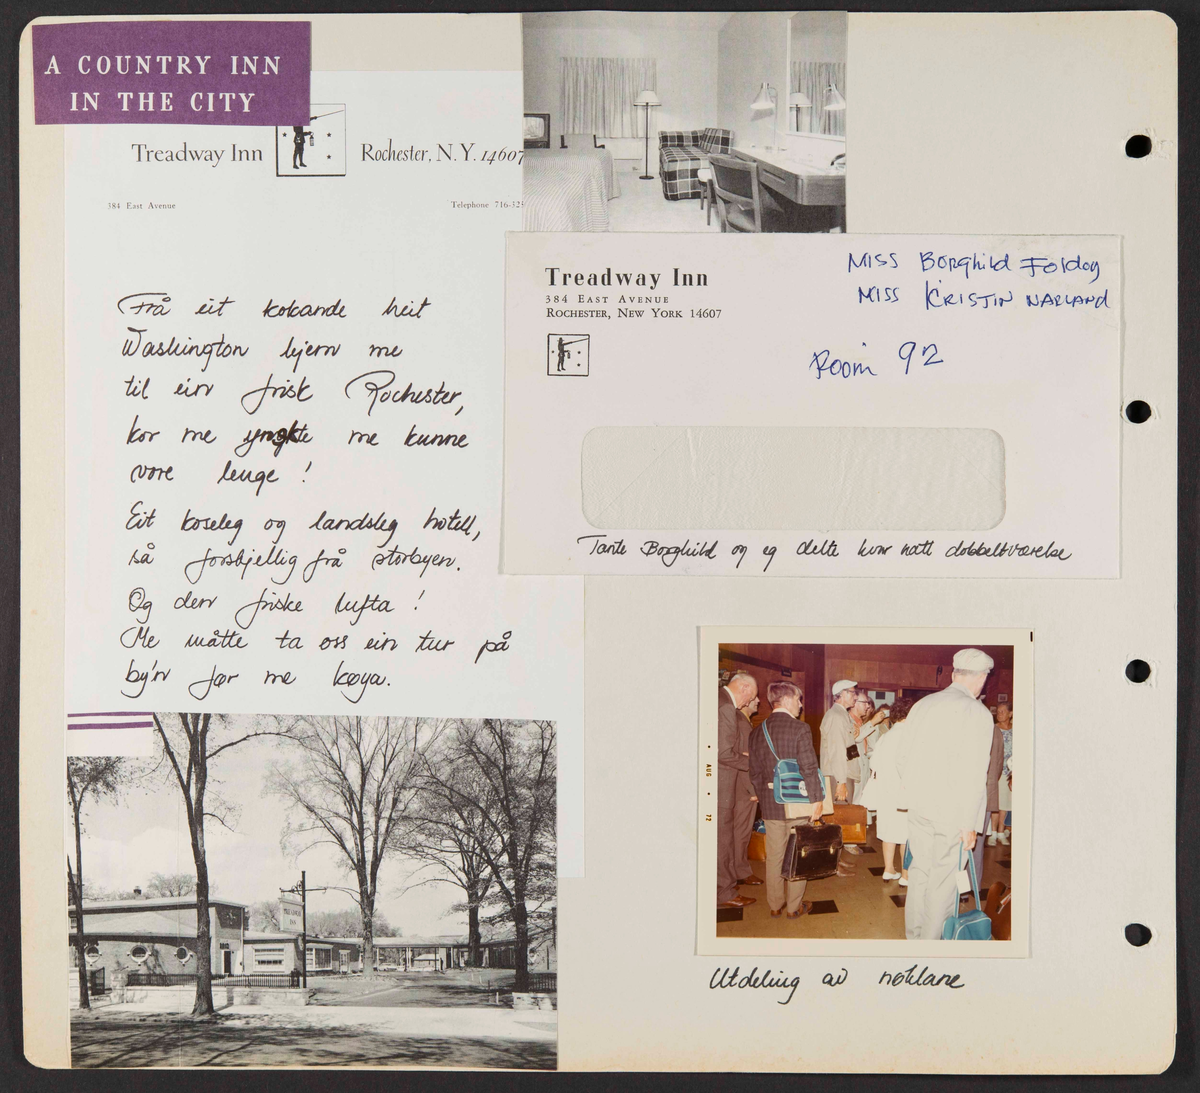 A COUNTRY INN
IN THE CITY
Treadway Inn
Rochester, N.Y. 14607
384 East Avenue
Telephone 716-32
Frå eit kokande heit
Washington kjem me
til ein frisk Rochester,
kor me me kunne
vore lenge!
Eit koseleg og landsleg hotell,
så forskjellig frå storbyen.
Og den friske lufta!
Me måtte ta oss ein tur på
by'n før me køya.
TREADWAY
INN
Treadway Inn
384 East Avenue
Rochester, New York 14607
MISS Borghild Foldøy
MISS KRISTIN NARLAND
Room 92
Tante Borghild og eg delte kvar natt dobbeltværelse
• AUG • 72
Utdeling av nøklane